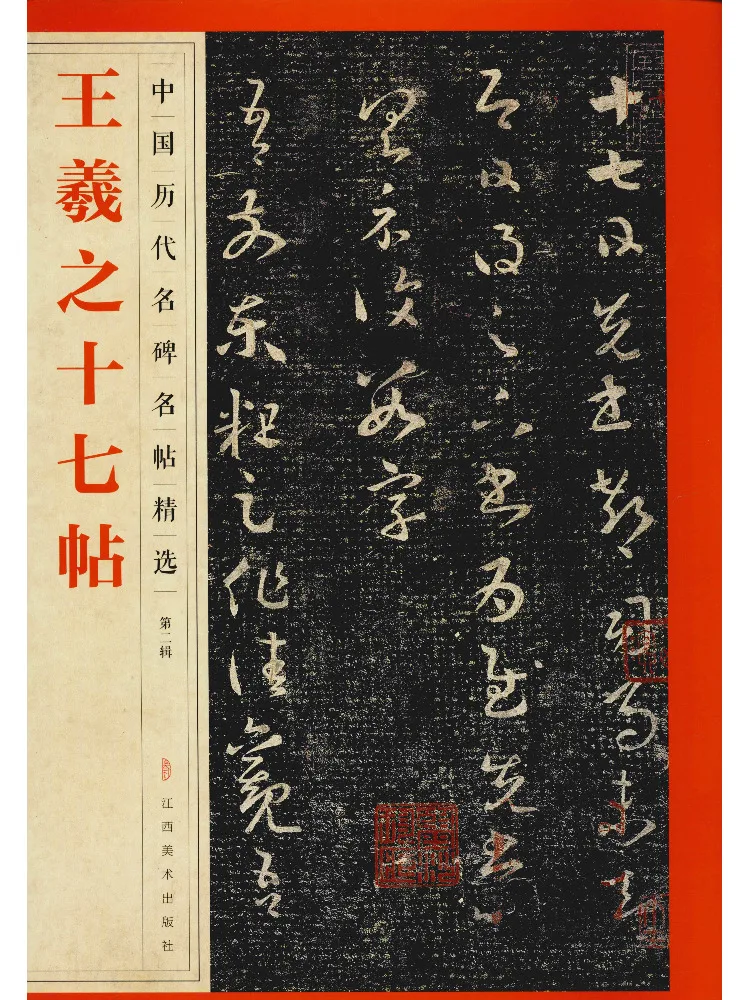 王羲之十七帖
中国历代名碑名帖精选
第二辑
江西美术出版社
十七日先書郗司馬未去
即日得足下書為慰先書以
具示復數字
吾前東粗足作佳觀吾